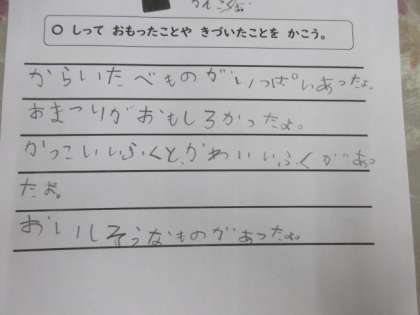 ○ しって おもったことや きづいたことを かこう。
からいたべものがいっぱいあったよ。
おまつりがおもしろかったよ。
かっこいいふくと、かわいいふくがあっ
たよ。
おいしそうなものがあったよ。